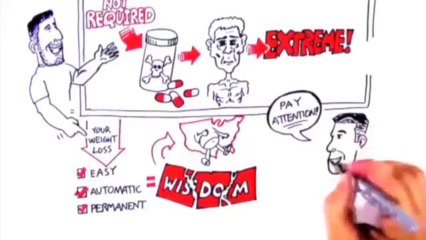 NOT
REQUIRED
EXTREME!
PAY
ATTENTION!
YOUR
WEIGHT
LOSS
EASY
AUTOMATIC
PERMANENT
=
WISDOM